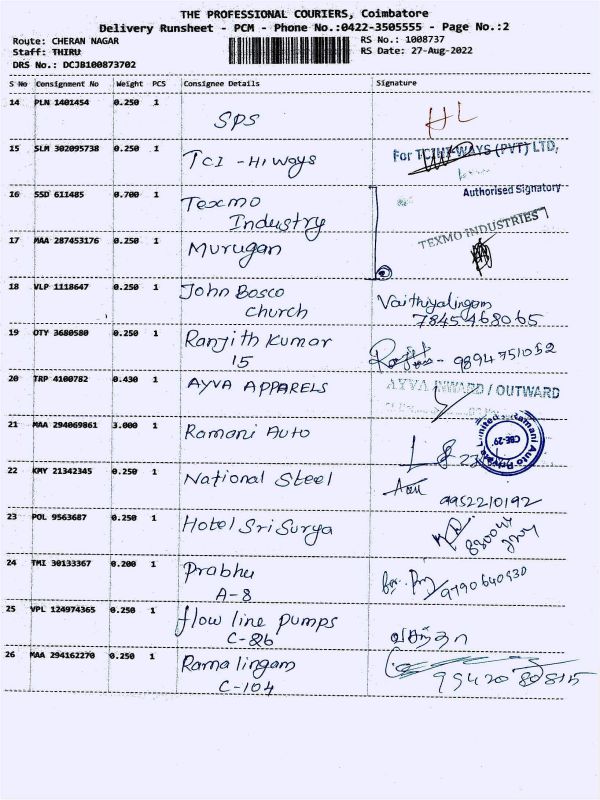 THE PROFESSIONAL COURIERS, Coimbatore
Delivery Runsheet - PCM - Phone No.:0422-3505555 - Page No.:2
Route: CHERAN NAGAR
RS No.: 1008737
Staff: THIRU
RS Date: 27-Aug-2022
DRS No.: DCJB100873702
S No Consignment No Weight PCS Consignee Details Signature
14 PLN 1401454 0.250 1
SPS
15 SLM 302095738 0.250 1
TCI - Hi ways
For TCI HI-WAYS (PVT) LTD,
Authorised Signatory
16 SSD 611485 0.700 1
Texmo
Industry
TEXMO INDUSTRIES
17 MAA 287453176 0.250 1
Murugan
18 VLP 1118647 0.250 1
John Bosco
church
Vaithiyalingam
7845468065
19 OTY 3680580 0.250 1
Ranjith Kumar
15
9894751052
20 TRP 4100782 0.430 1
AYVA APPARELS
AYVA INWARD / OUTWARD
21 MAA 294069861 3.000 1
Ramani Auto
Ramani Auto Private Limited
CBE-29.
22 KMY 21342345 0.250 1
National Steel
9952210192
23 POL 9563687 0.250 1
Hotel Sri Surya
24 TMI 30133367 0.200 1
Prabhu
A-8
9790640930
25 VPL 124974365 0.250 1
flow line pumps
C-86
26 MAA 294162270 0.250 1
Rama lingam
C-104